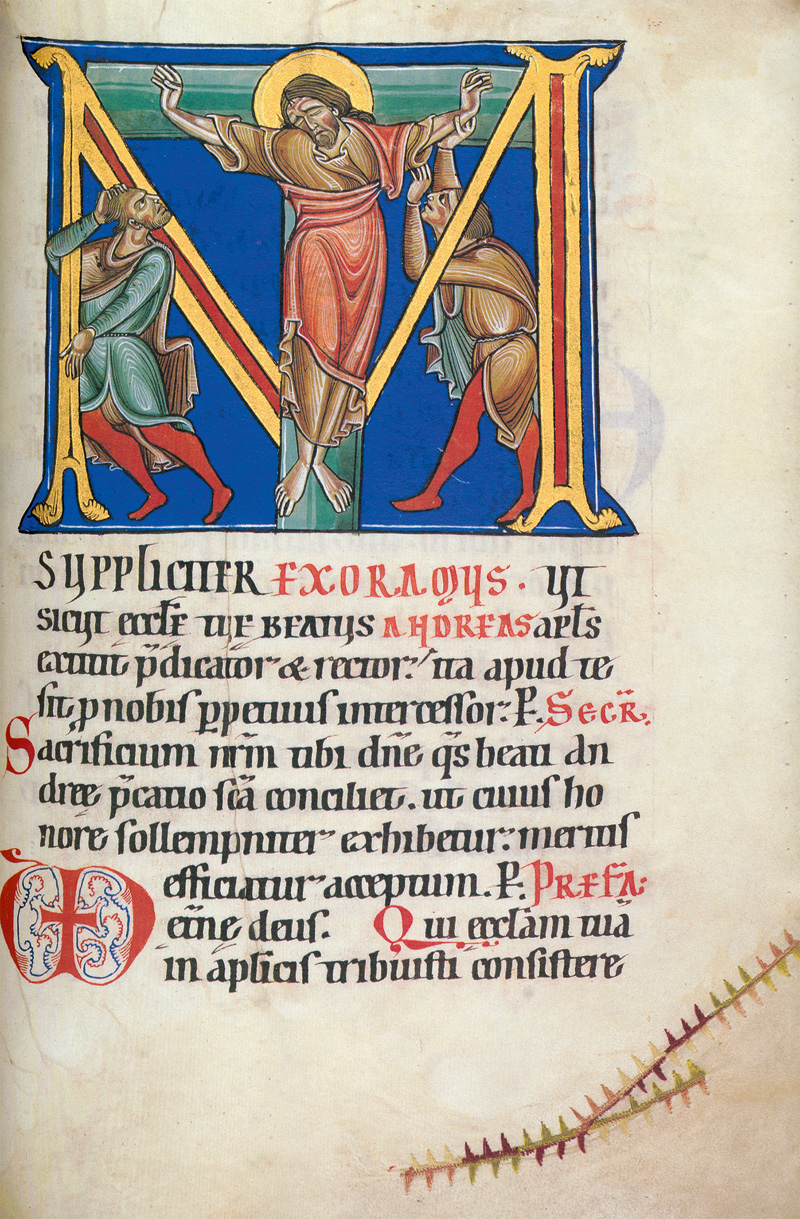 M
SUPPLICITER EXORAMUS. UT
SICUT eccłe TUE BEATUS ANDREAS apłs
extitit p̄dicator & rector: ita apud te
sit ꝓ nobis ꝑpetuus intercessor: P. SECR̄.
Sacrificium nr̄m tibi dn̄e q̄s beati An
dreę p̄catio sc̄ā conciliet. ut cuius ho
nore sollempniter exhibetur: meritis
efficiatur acceptum. P. PREFA:
etn̄e deus. Qui eccłam tuā
in apłicis tribuisti consistere